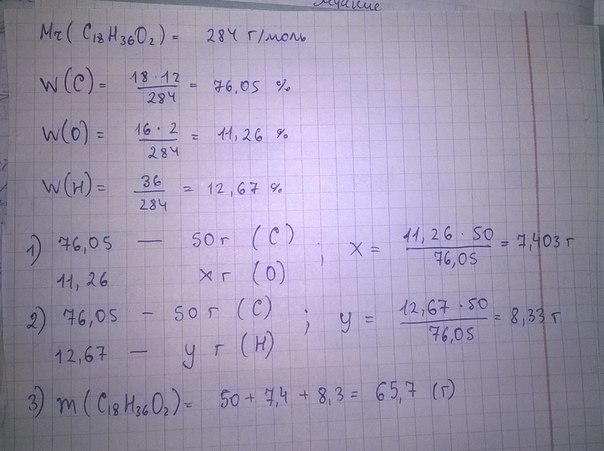 Mr(C₁₈H₃₆O₂) = 284 г/моль
W(C) = 18·12/284 = 76,05 %
W(O) = 16·2/284 = 11,26 %
W(H) = 36/284 = 12,67 %
1) 76,05 — 50 г (C) ; x = 11,26·50/76,05 = 7,403 г
11,26 x г (O)
2) 76,05 – 50 г (C) ; y = 12,67·50/76,05 = 8,33 г
12,67 — y г (H)
3) m(C₁₈H₃₆O₂) = 50 + 7,4 + 8,3 = 65,7 (г)